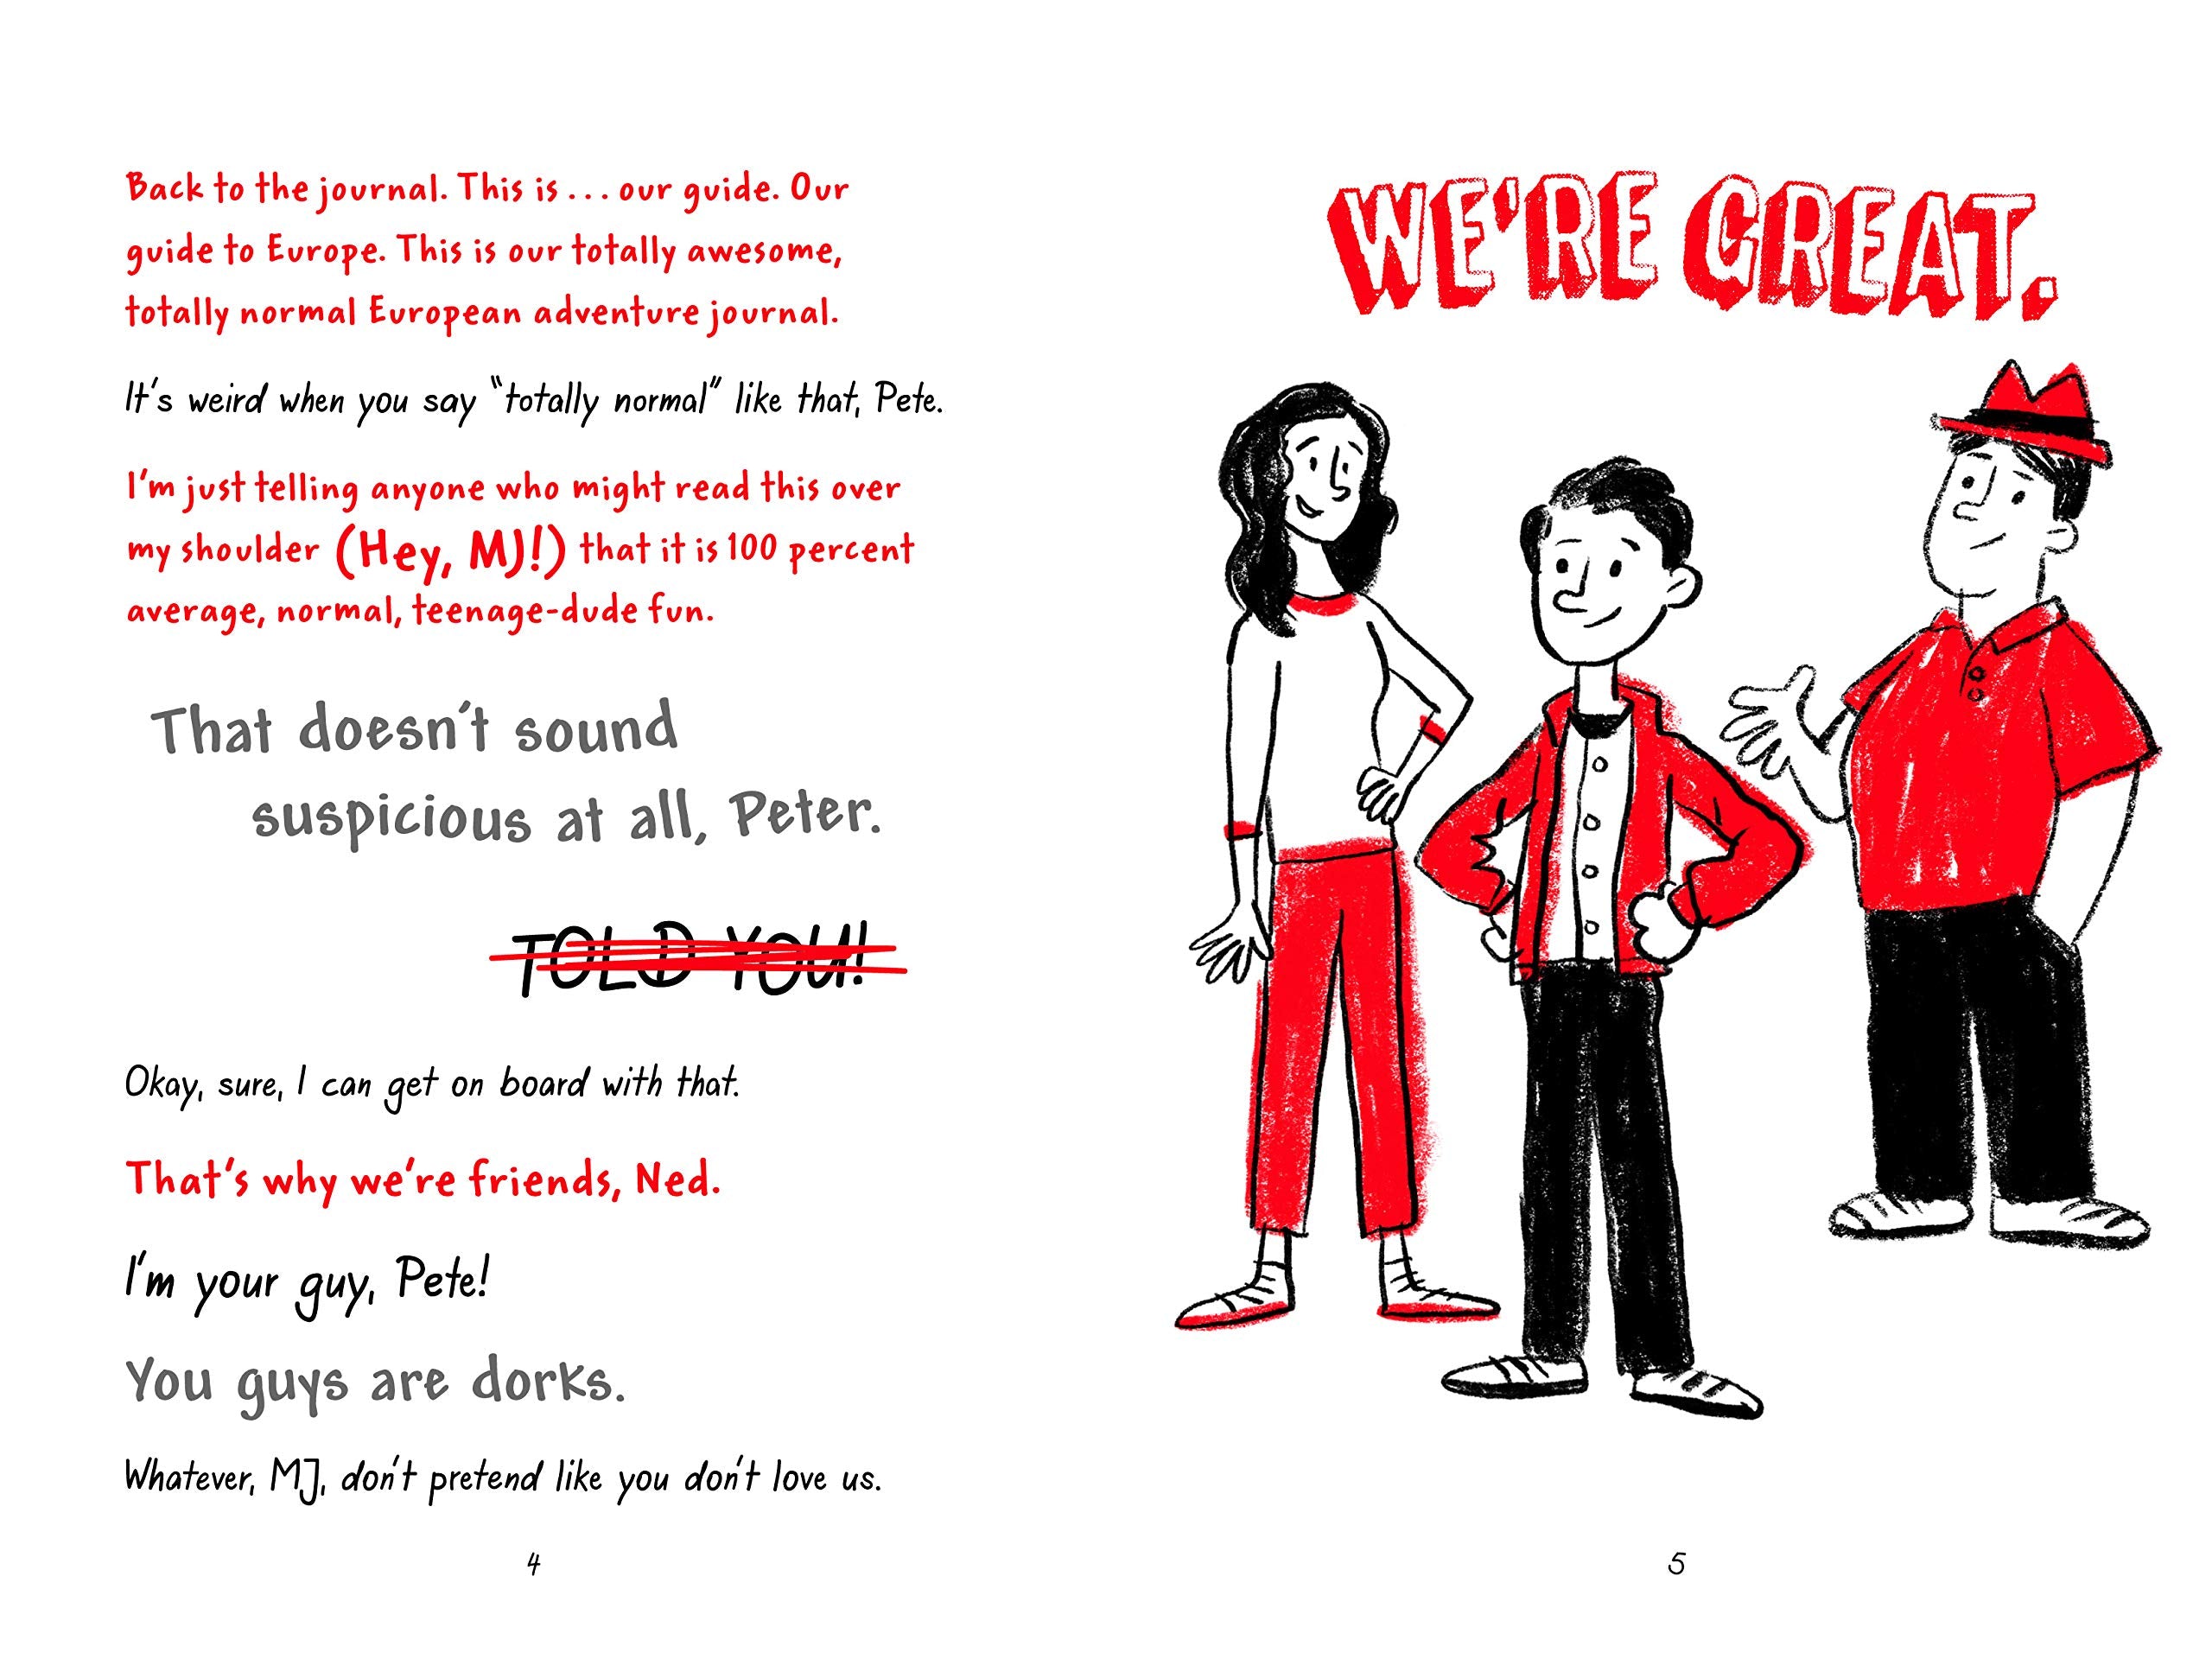 Back to the journal. This is . . . our guide. Our
guide to Europe. This is our totally awesome,
totally normal European adventure journal.
It's weird when you say “totally normal” like that, Pete.
I'm just telling anyone who might read this over
my shoulder (Hey, MJ!) that it is 100 percent
average, normal, teenage-dude fun.
That doesn't sound
suspicious at all, Peter.
TOLD YOU!
Okay, sure, I can get on board with that.
That's why we're friends, Ned.
I'm your guy, Pete!
You guys are dorks.
Whatever, MJ, don't pretend like you don't love us.
4
WE'RE GREAT.
5